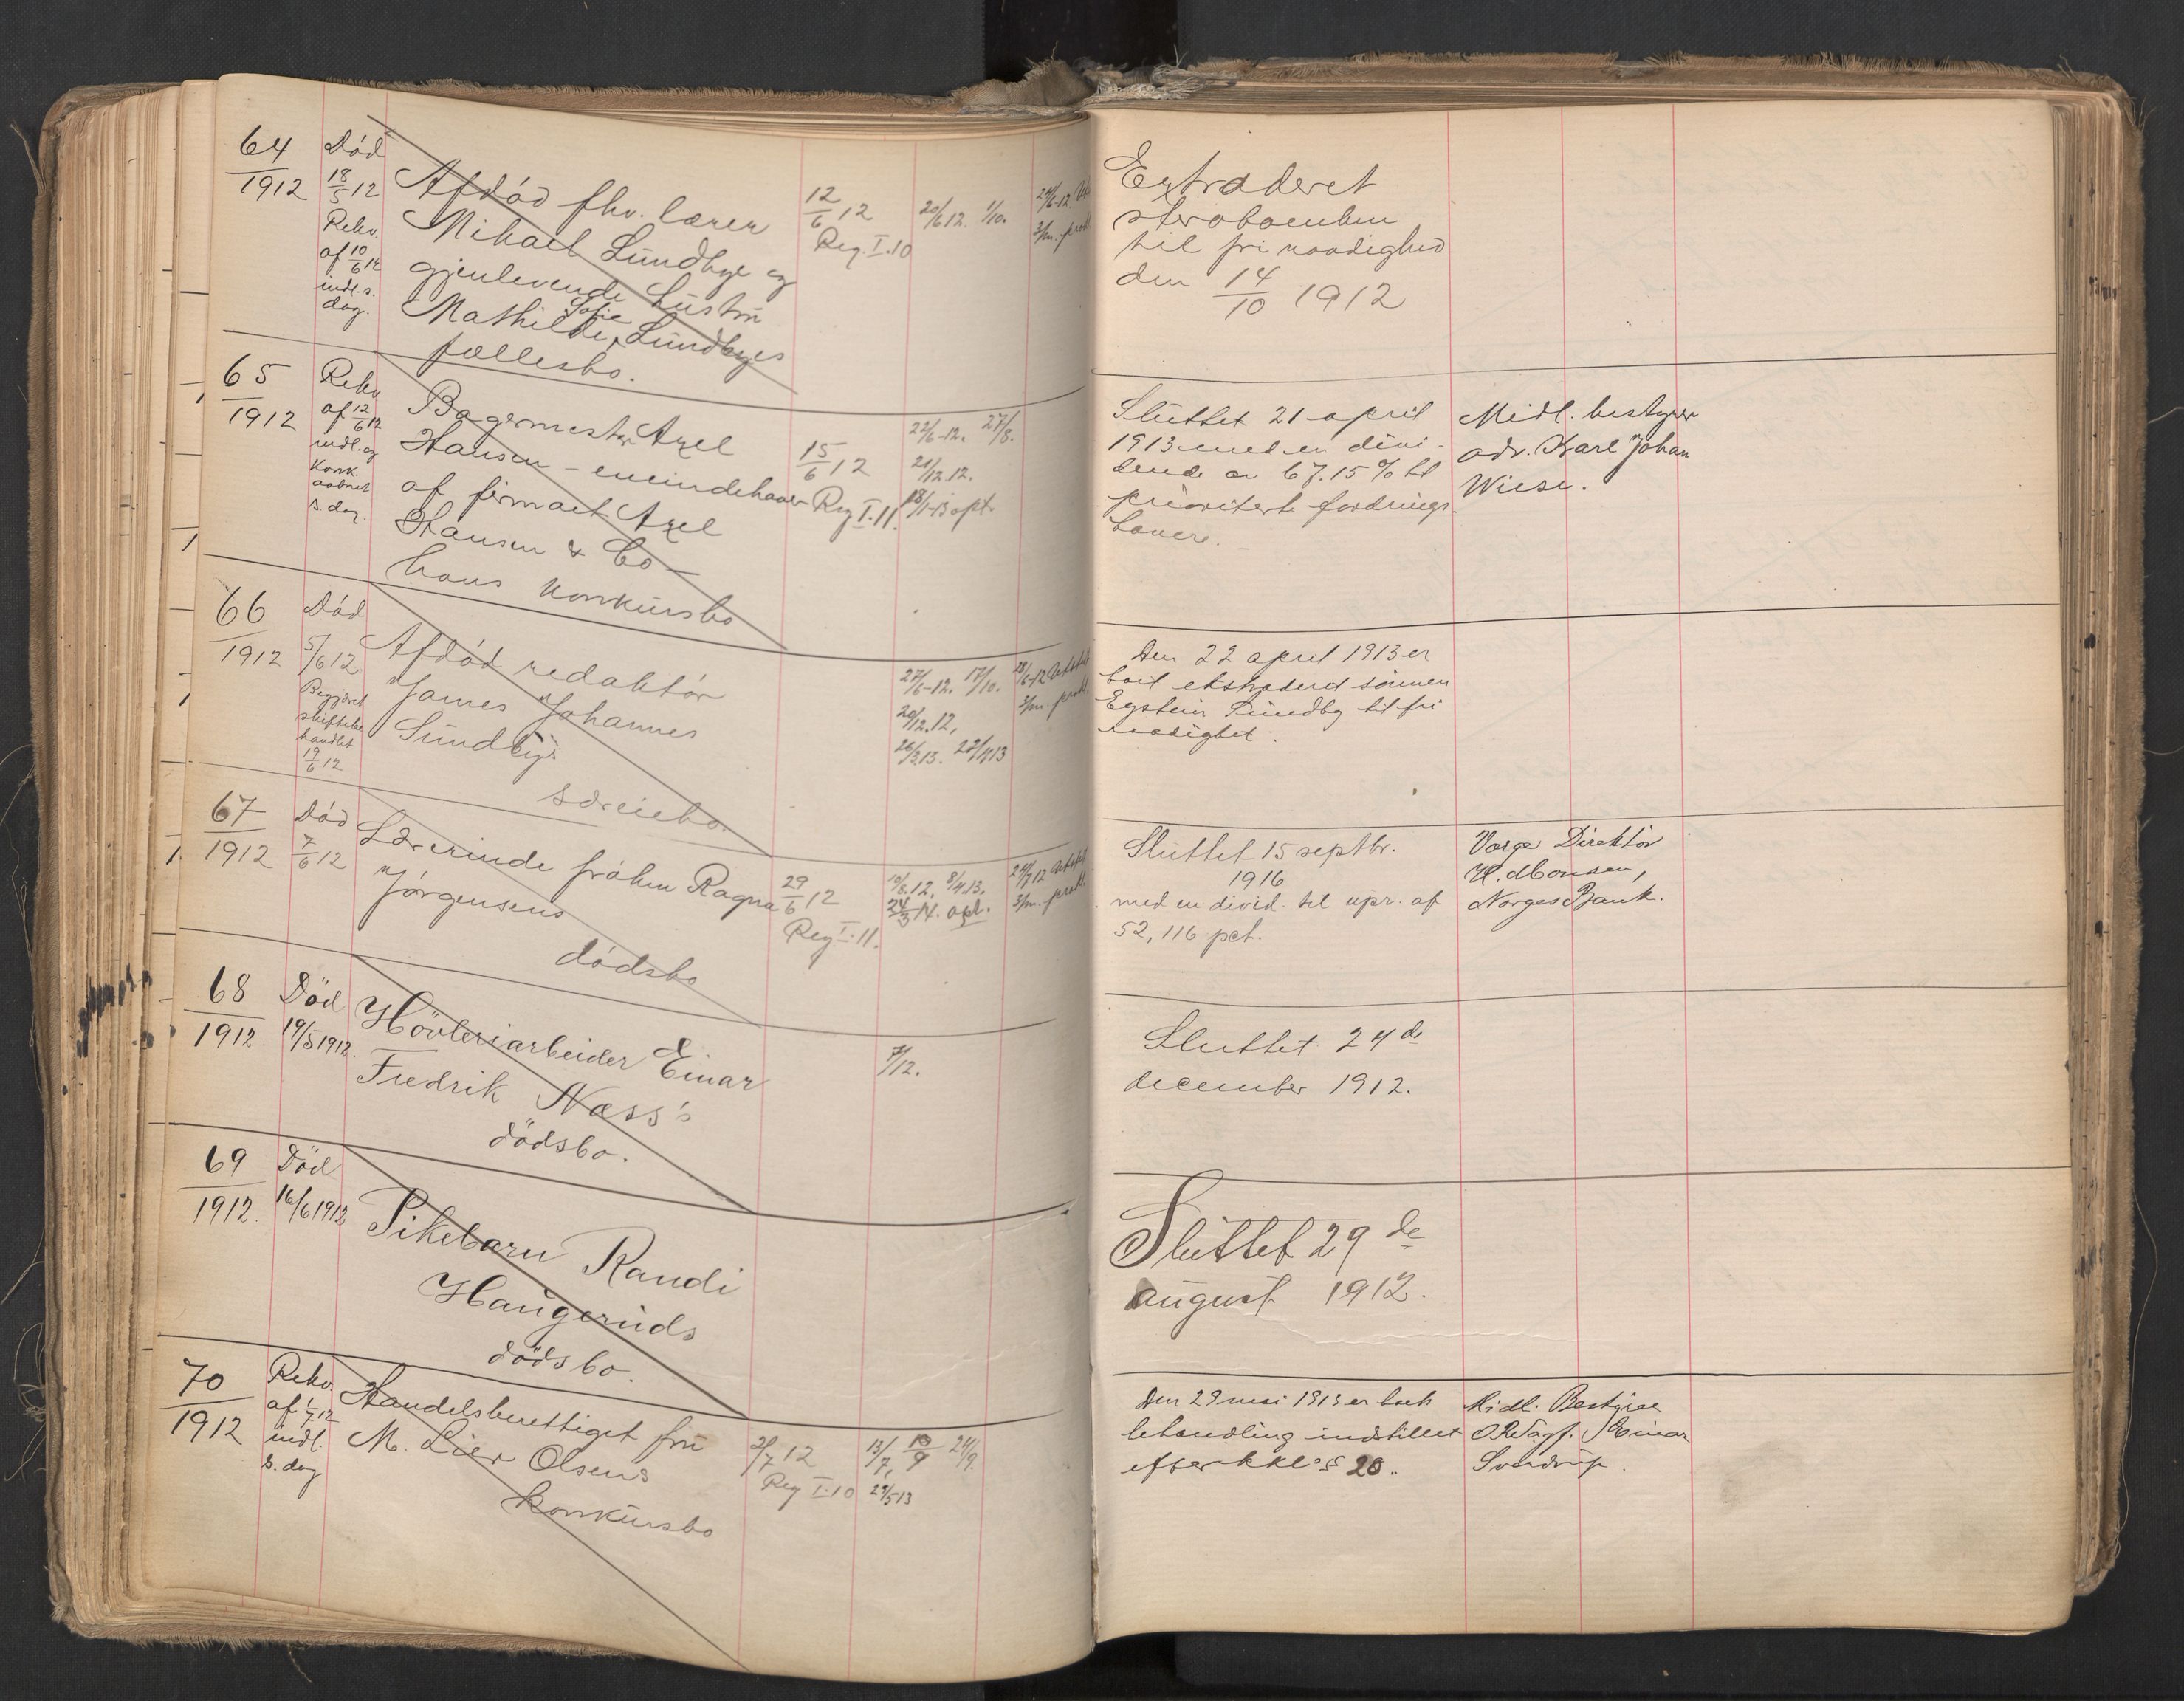 64
1912
Död
18/5 12
Rekv.
af 10/6 12
indl. s.
dag.
Afdöd fhv. lærer
Mikael Lundbye og
gjenlevende hustru
Mathilde Sofie Lundbyes
fællesbo.
12/6 12
Reg. I. 10
20/6 12. 1/10.
24/6-12.
3/m.
Extraderet
til fri raadighed
den 14/10 1912
65
1912
Rekv
af 12/6 12
indl. og
Konk.
aabnet
s. dag.
Bagermester Axel
Hansen – eneindehaver
af firmaet Axel
Hansen & Co –
hans konkursbo
15/6 12
Reg I. 11.
22/6-12. 27/8.
21/12.12.
18/1-13 opt.
Sluttet 21 april
1913 med en divi-
dende av 67.15 % til
prioriterte fordrings-
havere.
Midl. bestyrer
adv. Karl Johan
Wiese.
66
1912
Död
5/6 12
Begjært
skiftebe
handlet
19/6 12
Afdöd redaktör
James Johannes
Sundbys
særeiebo.
27/6-12. 17/10.
20/12.12.
26/3.13. 22/4 13
28/6-12
3/m. prokl.
Den 22 april 1913 er
boet ekstraderet sönnen
Eystein Sundby til fri
raadighet.
67
1912
Död
7/6 12
Lærerinde fröken Ragna
Jörgensens
dödsbo
29/6 12
Reg I. 11.
10/8.12. 8/4.13.
24/3 14. opt.
24/7 12
3/m. prokl.
Sluttet 15 septbr.
1916
med en divid. til upr. af
52,116 pct.
Værge Direktör
Monsen,
Norges Bank.
68
1912.
Död
19/5 1912.
Hövleriarbeider Einar
Fredrik Næss's
dödsbo.
7/12.
Sluttet 24de
december 1912.
69
1912.
Död
16/6 1912
Pikebarn Randi
Haugeruds
dödsbo.
Sluttet 29de
august 1912.
70
1912
Rekv.
af 1/7 12
indl.
s. dag
Handelsberettiget fru
M. Lier Olsens
konkursbo
2/7 12
Reg I. 10
13/7, 10/9 24/9.
29/5 13
Den 29 mai 1913 er boets
behandling indstillet
efter kkl. § 20.
Midl. Bestyrer
O.R.Sagf. Einar
Sverdrup.